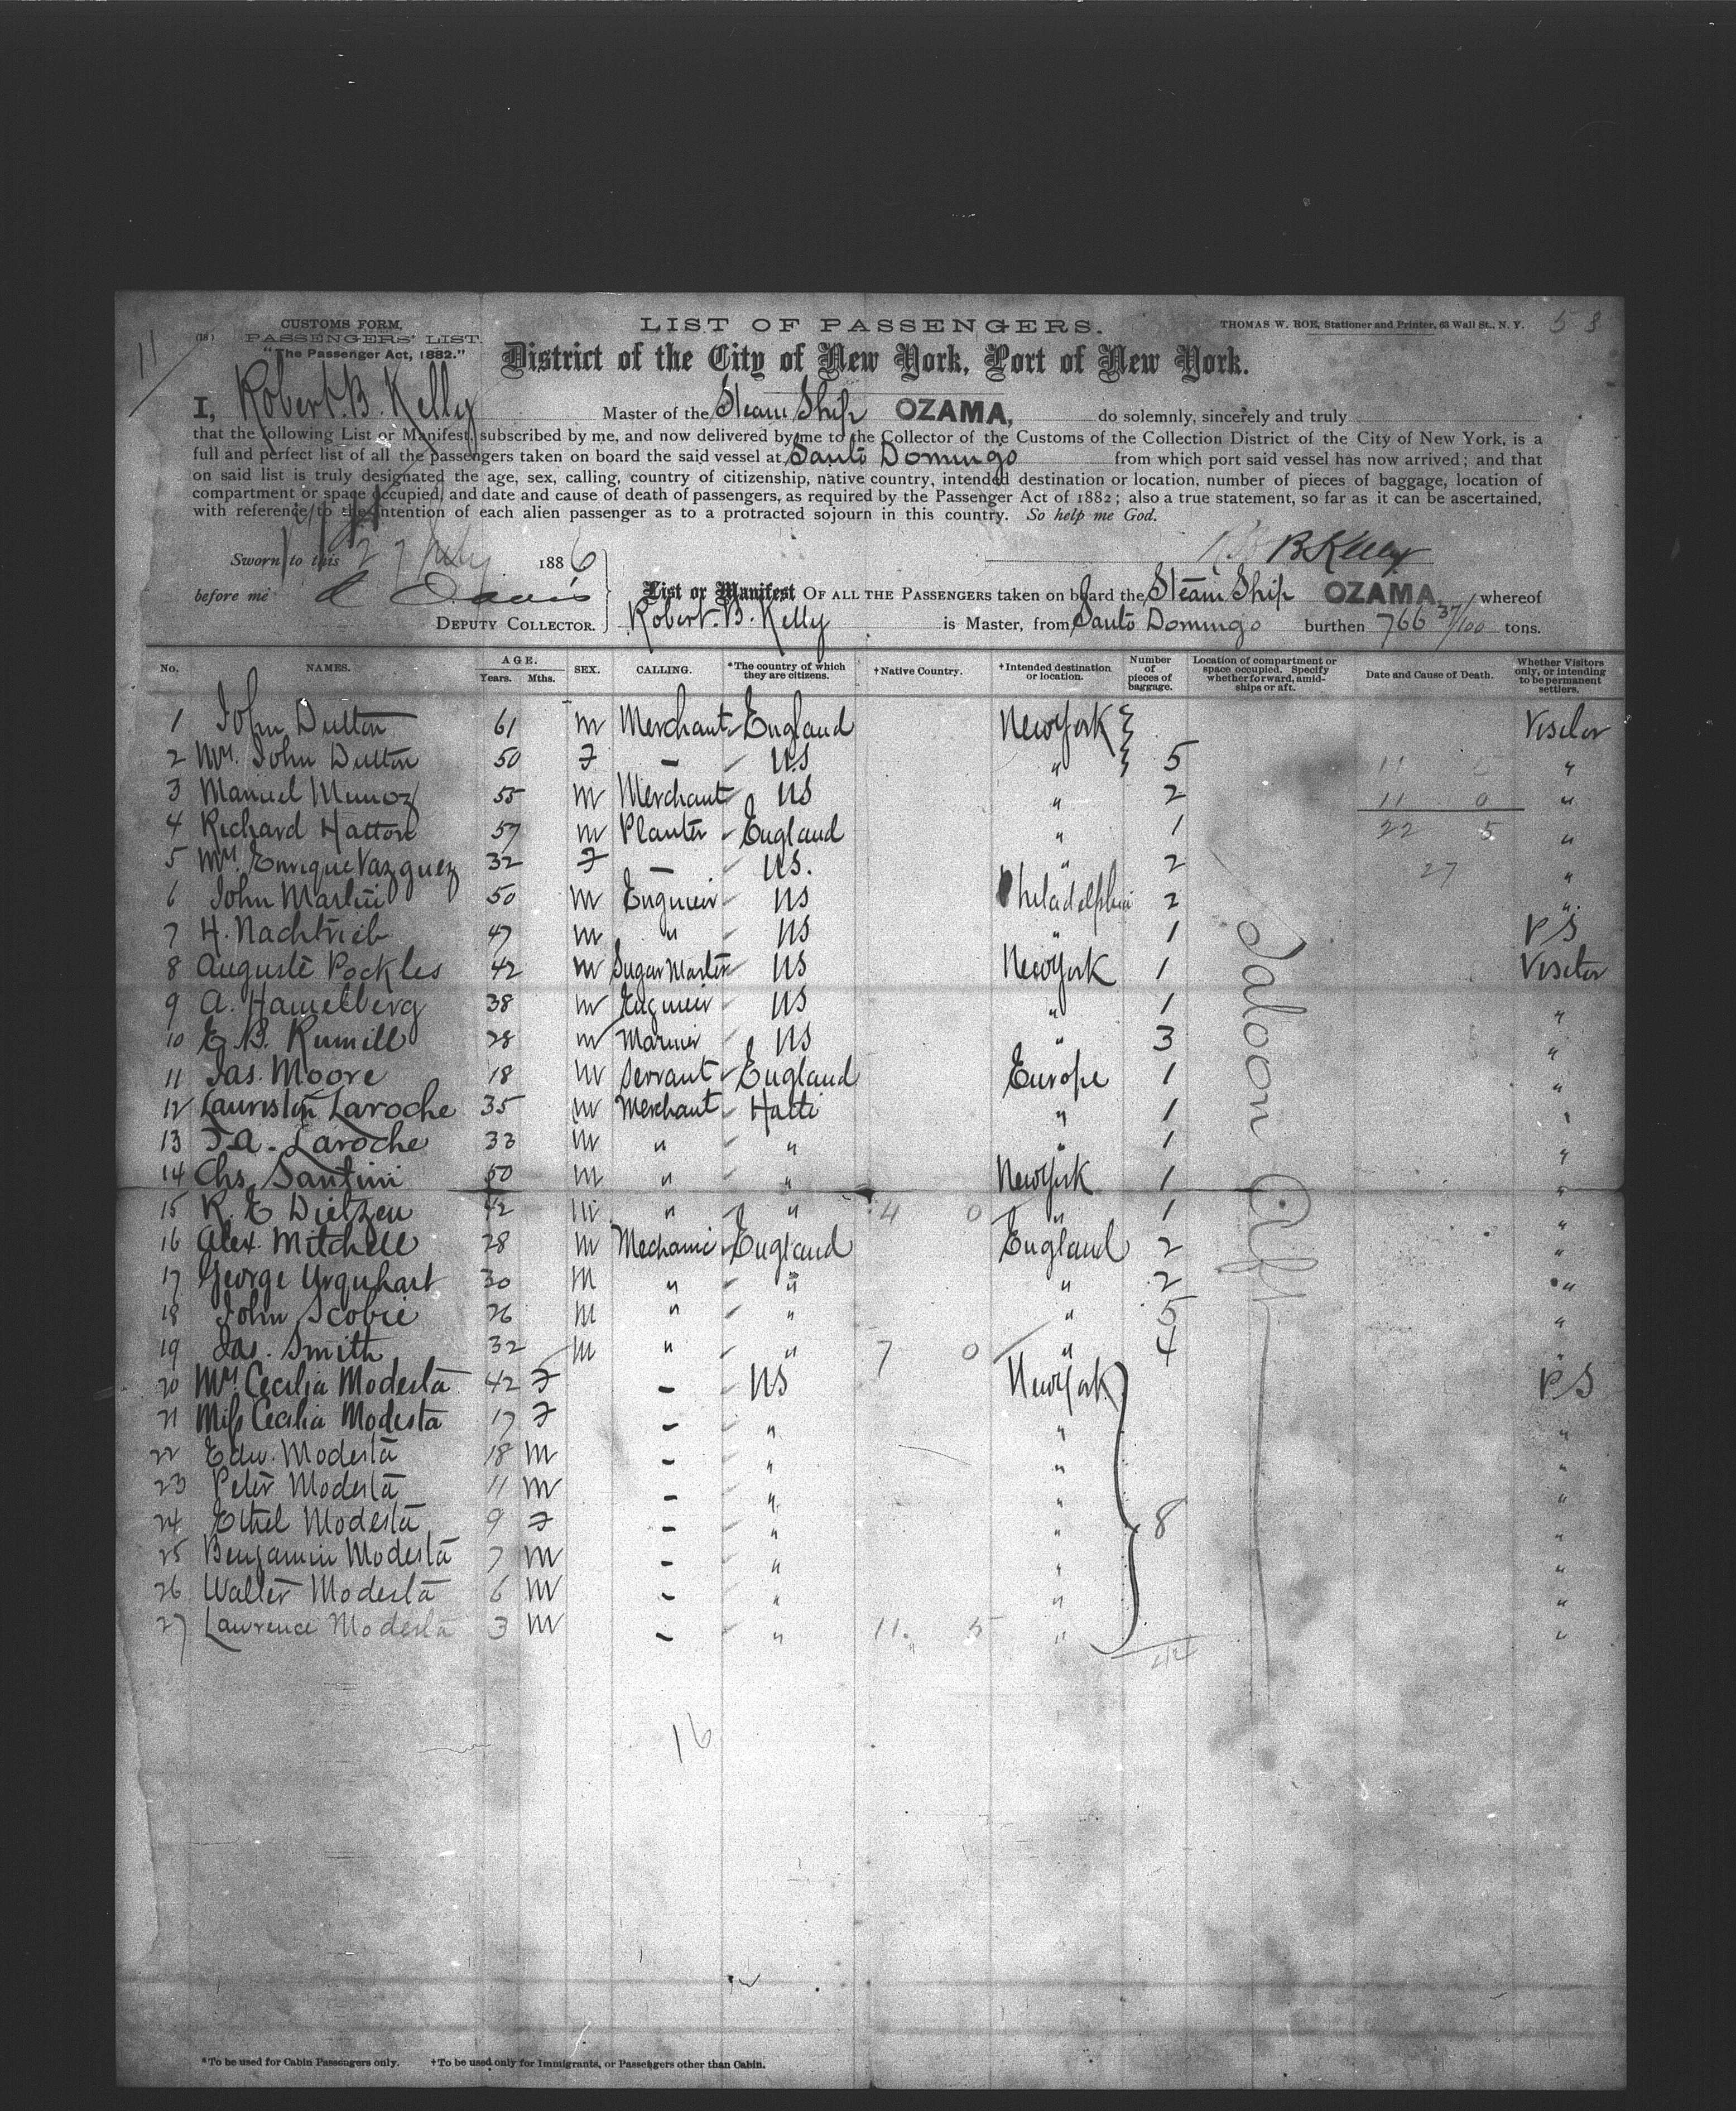 11
(18)
CUSTOMS FORM,
PASSENGERS' LIST.
"The Passenger Act, 1882."
LIST OF PASSENGERS.
THOMAS W. ROE, Stationer and Printer, 63 Wall St., N. Y.
58
District of the City of New York, Port of New York.
I, Robert. B. Kelly Master of the Steam Ship OZAMA, do solemnly, sincerely and truly
that the following List or Manifest, subscribed by me, and now delivered by me to the Collector of the Customs of the Collection District of the City of New York, is a
full and perfect list of all the passengers taken on board the said vessel at Santo Domingo from which port said vessel has now arrived; and that
on said list is truly designated the age, sex, calling, country of citizenship, native country, intended destination or location, number of pieces of baggage, location of
compartment or space occupied, and date and cause of death of passengers, as required by the Passenger Act of 1882; also a true statement, so far as it can be ascertained,
with reference to the intention of each alien passenger as to a protracted sojourn in this country. So help me God.
Sworn to this 27 July 1886
B Kelly
before me Davis
DEPUTY COLLECTOR.
List or Manifest OF ALL THE PASSENGERS taken on board the Steam Ship OZAMA, whereof
Robert. B. Kelly is Master, from Santo Domingo burthen 766 37/100 tons.
No. NAMES. AGE. Years. Mths. SEX. CALLING. *The country of which they are citizens. †Native Country. †Intended destination or location. Number of pieces of baggage. Location of compartment or space occupied. Specify whether forward, amidships or aft. Date and Cause of Death. Whether Visitors only, or intending to be permanent settlers.
1 John Dutton 61 m Merchant England New York Visitor
2 Mrs. John Dutton 50 F - U.S " 5 "
3 Manuel Munoz 55 m Merchant US " 2 11 0 "
4 Richard Hatton 57 m Planter England " 1 22 5 "
5 Mrs. Enrique Vazquez 32 F - U.S. " 2 27 "
6 John Martin 50 m Engineer US Philadelphia 2 "
7 H. Nachtrieb 47 m " US " 1 PS
8 Auguste Pockles 42 m Sugar Master US New York 1 Visitor
9 A. Hamelberg 38 m Engineer US " 1 "
10 E. B. Rumill 28 m Mariner US " 3 "
11 Jas. Moore 18 m Servant England Europe 1 "
12 Lauriston Laroche 35 m Merchant Haiti " 1 "
13 J. A. Laroche 33 m " " " 1 "
14 Chs. Santini 50 m " " New York 1 "
15 R. E Dietzen 42 m " " 4 0 " 1 "
16 Alex. Mitchell 28 m Mechanic England England 2 "
17 George Urquhart 30 m " " " 2 "
18 John Scobie 26 m " " " 5 "
19 Jas. Smith 32 m " " 7 0 " 4 "
20 Mrs. Cecilia Modesta 42 F - US New York PS
21 Miss Cecilia Modesta 17 F - " " "
22 Edw. Modesta 18 m - " " "
23 Peter Modesta 11 m - " " "
24 Ethel Modesta 9 F - " " 8 "
25 Benjamin Modesta 7 m - " " "
26 Walter Modesta 6 m - " " "
27 Lawrence Modesta 3 m - " 11. 5 " "
Saloon Aft
42
16
*To be used for Cabin Passengers only. †To be used only for Immigrants, or Passengers other than Cabin.